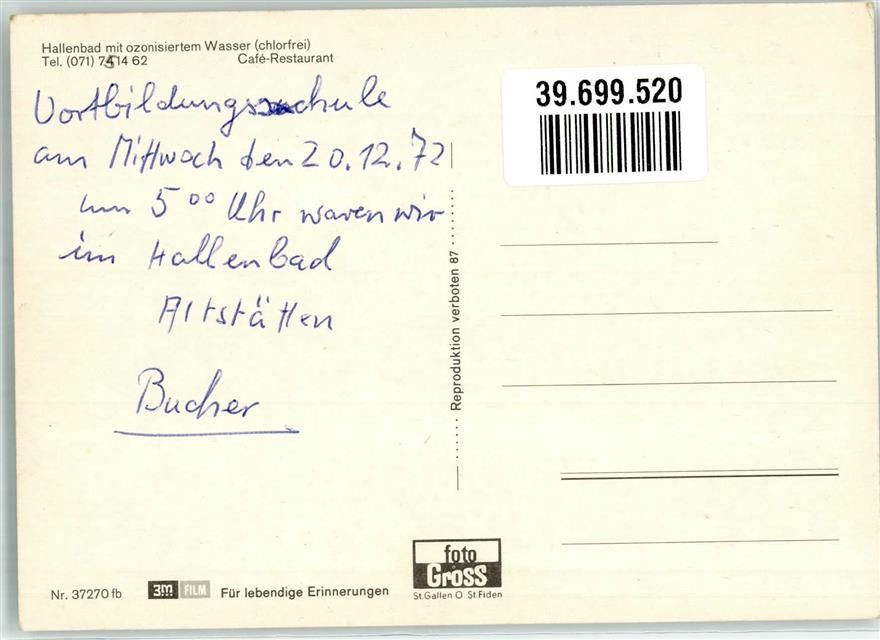 Hallenbad mit ozonisiertem Wasser (chlorfrei)
Tel. (071) 75 14 62 Café-Restaurant
39.699.520
Vortbildungsschule
am Mittwoch den 20.12.72
um 5 00 Uhr waren wir
im Hallenbad
Altstätten
Bucher
Reproduktion verboten 87
Nr. 37270 fb 3M FILM Für lebendige Erinnerungen
foto
Gross
St.Gallen O St.Fiden